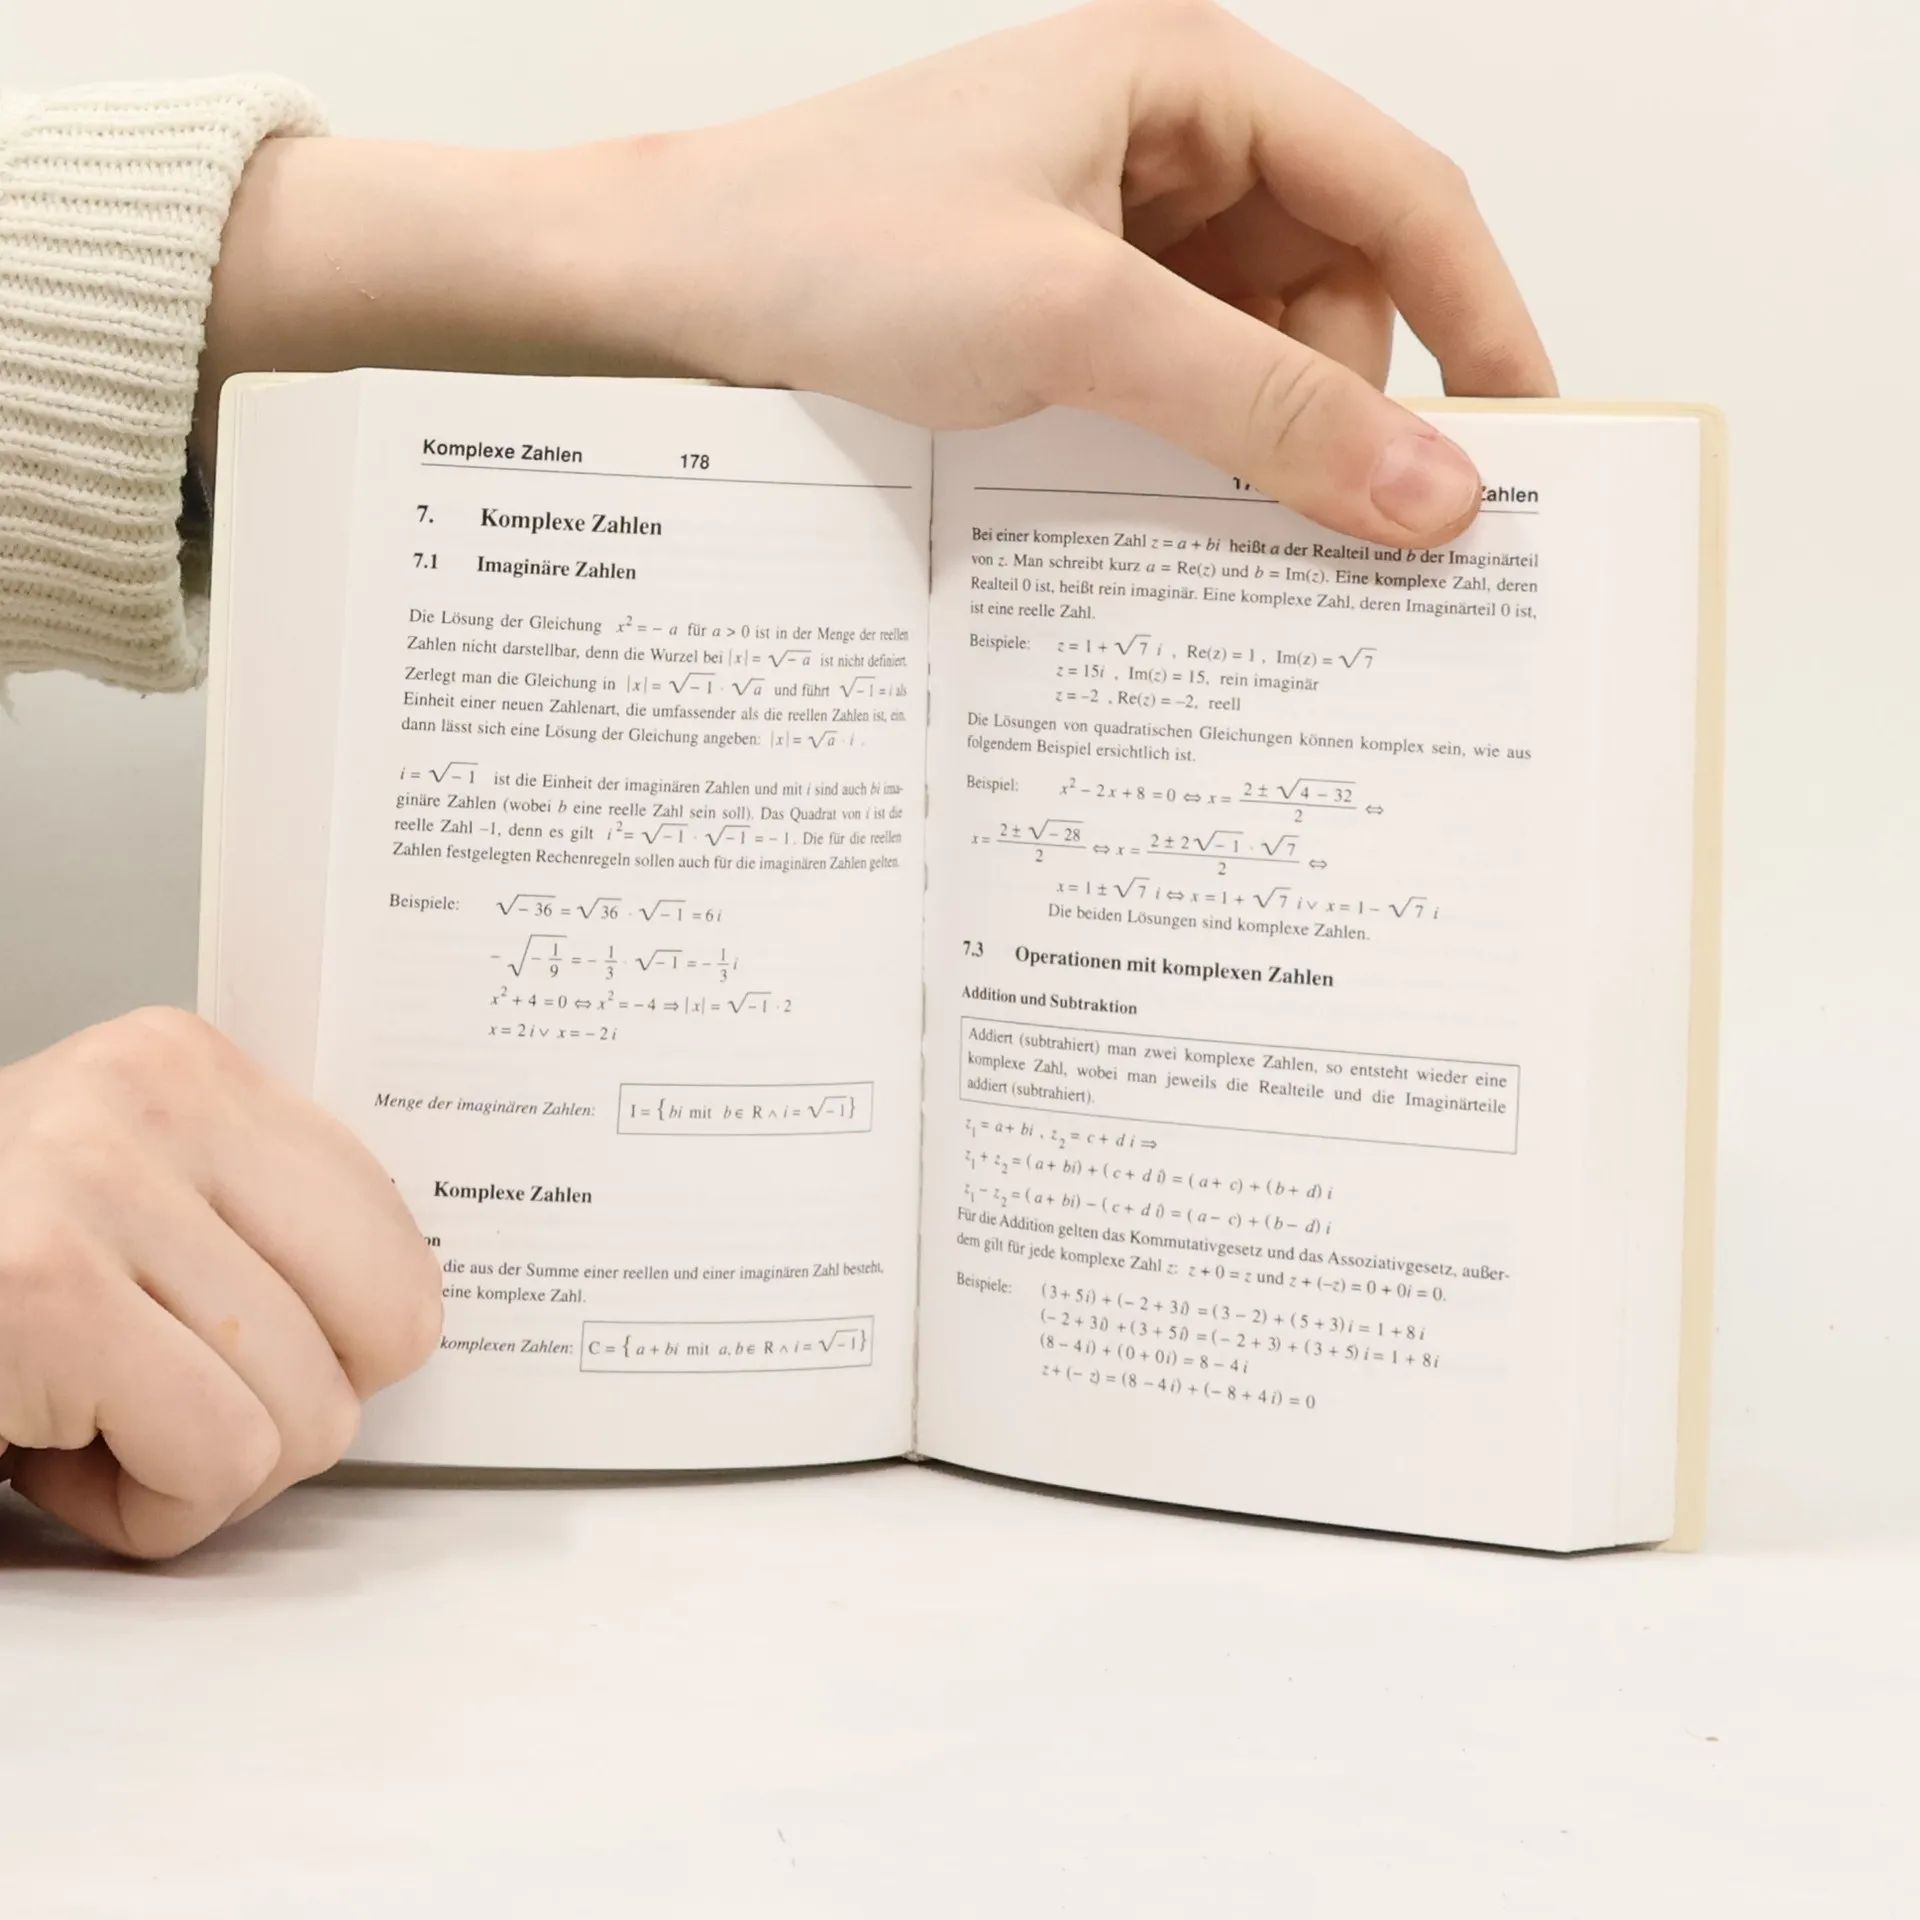 Komplexe Zahlen 178
7. Komplexe Zahlen
7.1 Imaginäre Zahlen
Die Lösung der Gleichung x² = – a für a > 0 ist in der Menge der reellen
Zahlen nicht darstellbar, denn die Wurzel bei |x| = √–a ist nicht definiert.
Zerlegt man die Gleichung in |x| = √–1 · √a und führt √–1 = i als
Einheit einer neuen Zahlenart, die umfassender als die reellen Zahlen ist, ein,
dann lässt sich eine Lösung der Gleichung angeben: |x| = √a · i .
i = √–1 ist die Einheit der imaginären Zahlen und mit i sind auch bi ima-
ginäre Zahlen (wobei b eine reelle Zahl sein soll). Das Quadrat von i ist die
reelle Zahl –1, denn es gilt i² = √–1 · √–1 = – 1. Die für die reellen
Zahlen festgelegten Rechenregeln sollen auch für die imaginären Zahlen gelten.
Beispiele: √–36 = √36 · √–1 = 6 i
– √(–1/9) = – 1/3 · √–1 = – 1/3 i
x² + 4 = 0 ⇔ x² = – 4 ⇒ |x| = √–1 · 2
x = 2 i ∨ x = – 2 i
Menge der imaginären Zahlen: I = { bi mit b ∈ R ∧ i = √–1 }
Komplexe Zahlen
on
die aus der Summe einer reellen und einer imaginären Zahl besteht,
eine komplexe Zahl.
komplexen Zahlen: C = { a + bi mit a, b ∈ R ∧ i = √–1 }
17 Zahlen
Bei einer komplexen Zahl z = a + bi heißt a der Realteil und b der Imaginärteil
von z. Man schreibt kurz a = Re(z) und b = Im(z). Eine komplexe Zahl, deren
Realteil 0 ist, heißt rein imaginär. Eine komplexe Zahl, deren Imaginärteil 0 ist,
ist eine reelle Zahl.
Beispiele: z = 1 + √7 i , Re(z) = 1 , Im(z) = √7
z = 15i , Im(z) = 15, rein imaginär
z = –2 , Re(z) = –2, reell
Die Lösungen von quadratischen Gleichungen können komplex sein, wie aus
folgendem Beispiel ersichtlich ist.
Beispiel: x² – 2x + 8 = 0 ⇔ x = (2 ± √(4 – 32))/2 ⇔
x = (2 ± √–28)/2 ⇔ x = (2 ± 2√–1 · √7)/2 ⇔
x = 1 ± √7 i ⇔ x = 1 + √7 i ∨ x = 1 – √7 i
Die beiden Lösungen sind komplexe Zahlen.
7.3 Operationen mit komplexen Zahlen
Addition und Subtraktion
Addiert (subtrahiert) man zwei komplexe Zahlen, so entsteht wieder eine
komplexe Zahl, wobei man jeweils die Realteile und die Imaginärteile
addiert (subtrahiert).
z₁ = a + bi , z₂ = c + d i ⇒
z₁ + z₂ = (a + bi) + (c + d i) = (a + c) + (b + d) i
z₁ – z₂ = (a + bi) – (c + d i) = (a – c) + (b – d) i
Für die Addition gelten das Kommutativgesetz und das Assoziativgesetz, außer-
dem gilt für jede komplexe Zahl z: z + 0 = z und z + (–z) = 0 + 0i = 0.
Beispiele: (3 + 5i) + (– 2 + 3i) = (3 – 2) + (5 + 3) i = 1 + 8 i
(– 2 + 3i) + (3 + 5i) = (– 2 + 3) + (3 + 5) i = 1 + 8i
(8 – 4i) + (0 + 0i) = 8 – 4 i
z + (– z) = (8 – 4 i) + (– 8 + 4 i) = 0